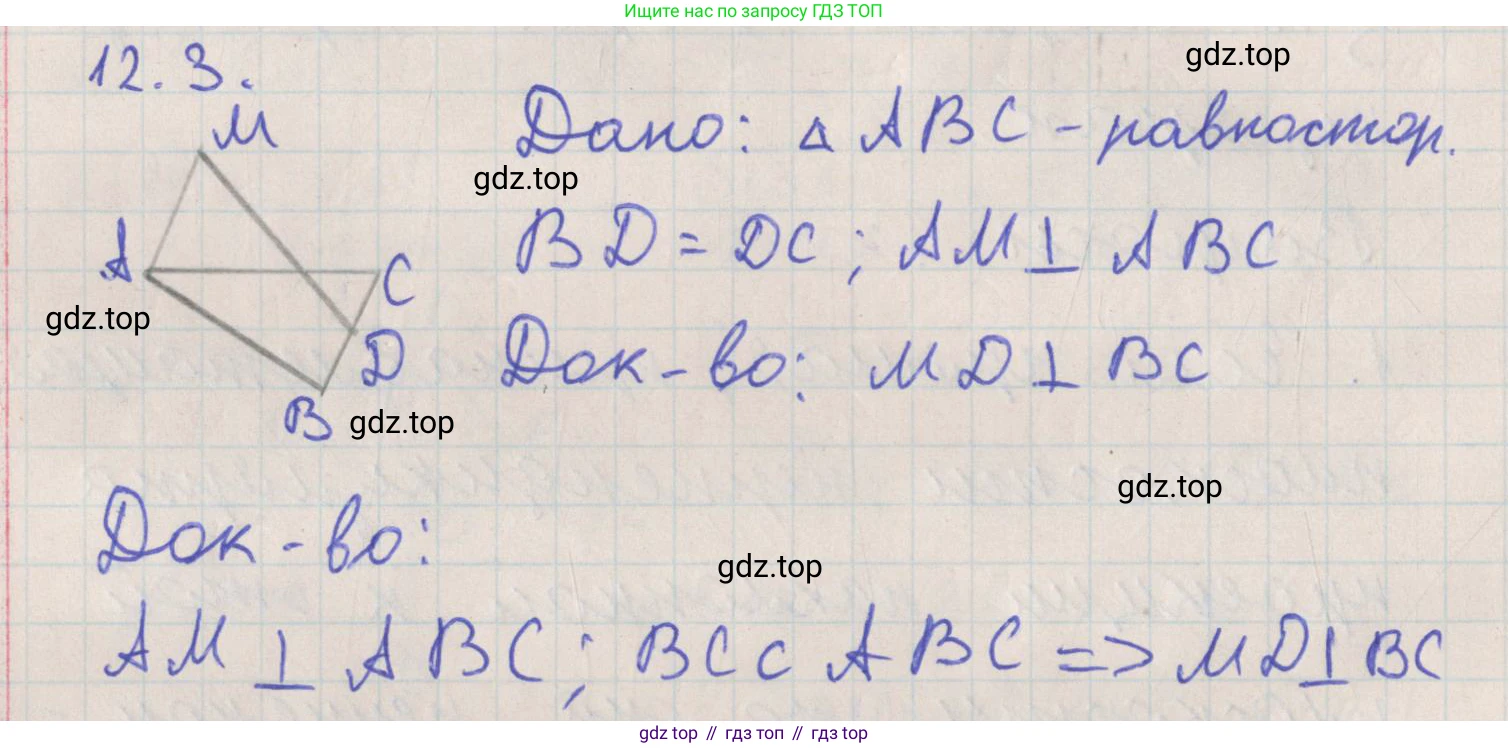 Ищите нас по запросу ГДЗ ТОП
12.3.
gdz.top
M
Дано: △ ABC - равностор.
gdz.top
A
BD = DC ; AM ⊥ ABC
C
gdz.top
D
Док-во: MD ⊥ BC
B
gdz.top
gdz.top
Док-во:
gdz.top
AM ⊥ ABC ; BC ⊂ ABC => MD ⊥ BC
gdz top // гдз топ // гдз top